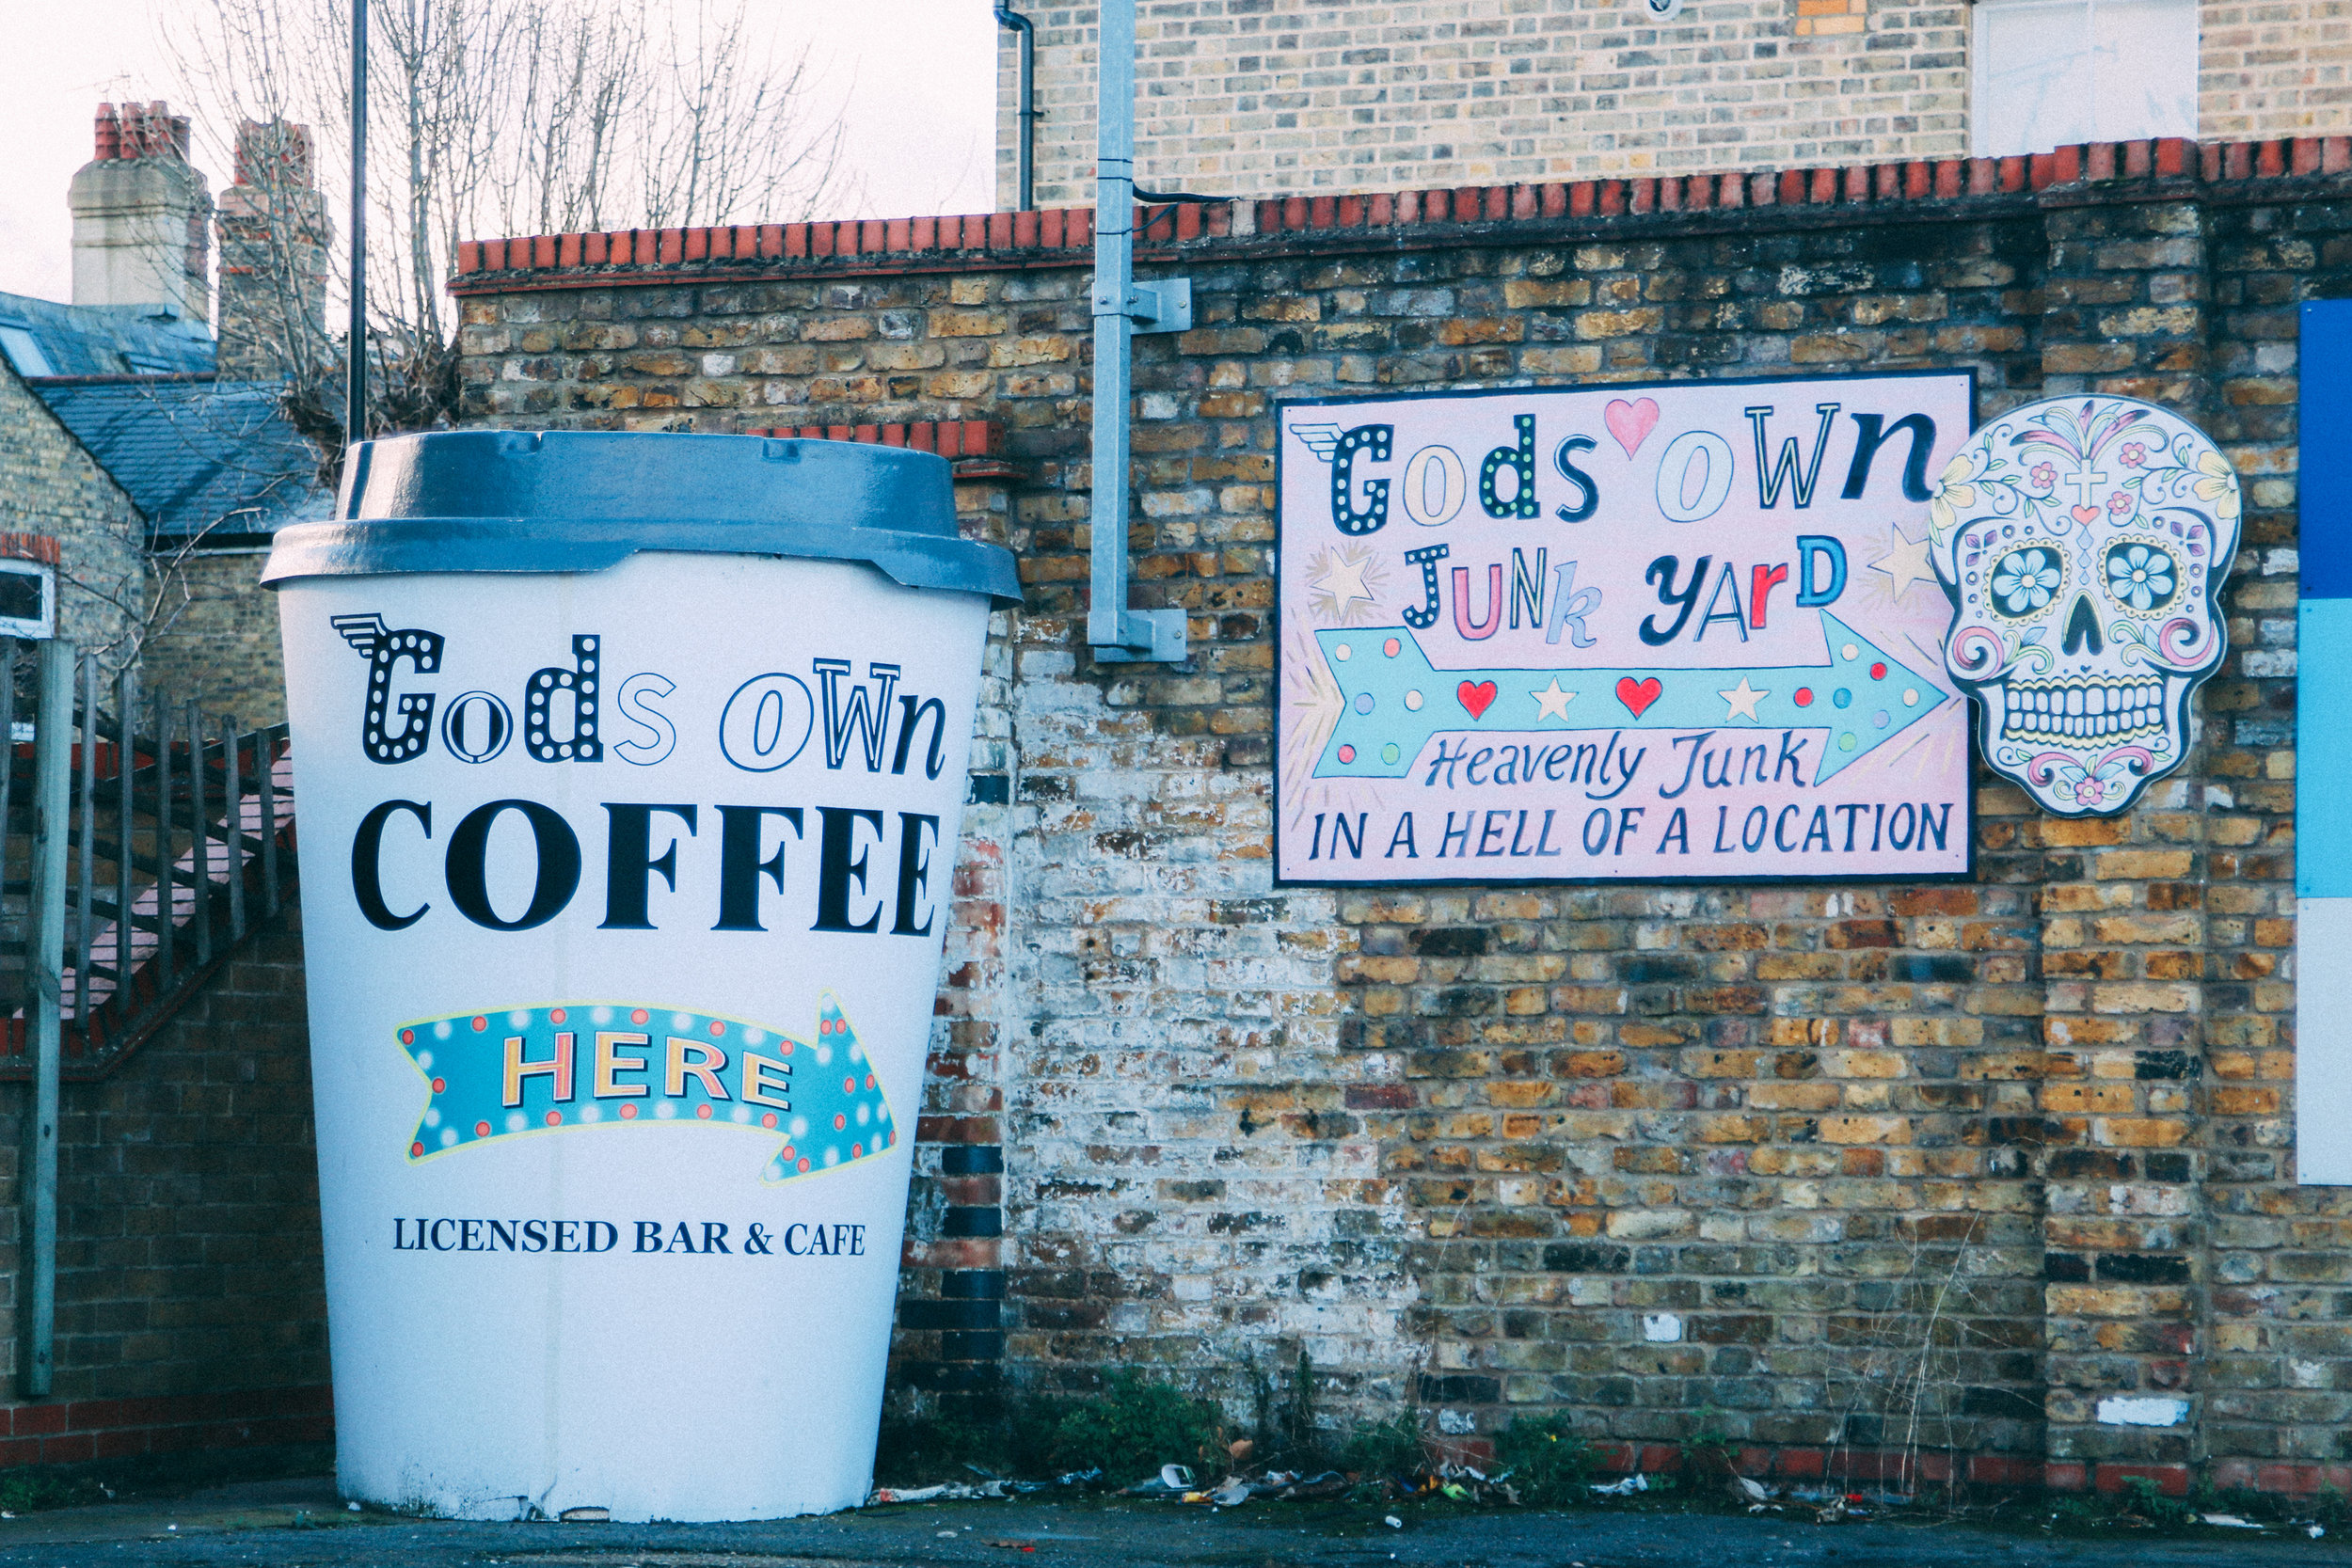 Gods own
COFFEE
HERE
LICENSED BAR & CAFE
Gods own
JUNk yArD
Heavenly Junk
IN A HELL OF A LOCATION